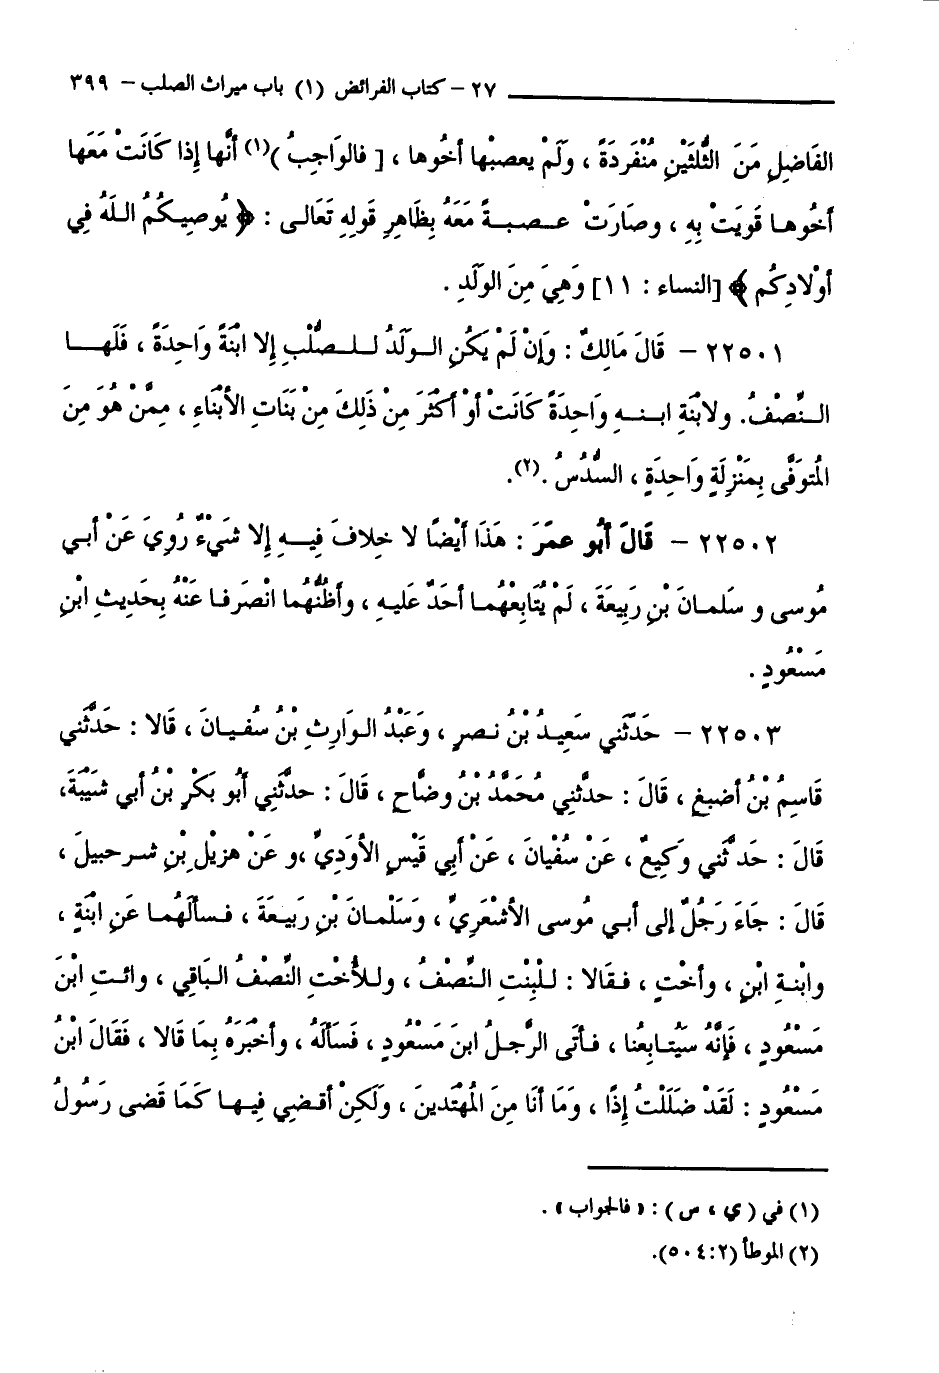 ٢٧ - كتاب الفرائض (١) باب ميراث الصلب - ٣٩٩
الفَاضِلِ مَنَ الثُّلثَيْنِ مُنْفَرِدَةً ، ولَمْ يعصبْها أخُوها ، [ فالوَاجِبُ )(١) أنَّها إِذا كَانَتْ مَعَها
أخُوهـا قَوِيَتْ بِهِ ، وصَارَتْ عـصبـةً مَعَهُ بِظَاهِرِ قَولِهِ تَعَالـى : ﴿ يُوصِيكُمُ اللَّهُ فِي
أوْلادِكُم ﴾ [النساء : ١١] وَهِيَ مِنَ الوَلَدِ .
٢٢٥٠١ - قَالَ مَالِكٌ : وَإنْ لَمْ يَكُنِ الـوَلَدُ للـصُّلْبِ إِلا ابْنَةً وَاحِدَةً ، فَلَهـا
النِّصْفُ. ولابْنَةِ ابـنـه وَاحِدَةً كَانَتْ أوْ أكْثَرَ مِنْ ذَلِكَ مِنْ بَنَاتِ الأبْنَاءِ ، مِمَّنْ هُوَ مِنَ
المُتوَفَّى بِمَنْزِلَةٍ وَاحِدَةٍ ، السُّدُسُ .(٢).
٢٢٥٠٢ - قَالَ أَبُو عمَرَ : هَذَا أيْضًا لا خِلافَ فِيـهِ إِلا شَيْءٌ رُوِيَ عَنْ أبـي
مُوسى و سَلمـانَ بْنِ رَبِيعَةَ ، لَمْ يُتَابِعْهُمـا أحَدٌ عَليـهِ ، وأظُنُّهُما انْصَرفـا عَنْهُ بِحَدِيثِ ابْنِ
مَسْعُودٍ .
٢٢٥٠٣ - حَدَّثَني سَعِيـدُ بْنُ نـصرٍ ، وَعَبْدُ الـوَارِثِ بْنُ سُفْيـانَ ، قَالا : حَدَّثَني
قَاسِمُ بْنُ أصْبغٍ ، قَالَ : حدَّثنِي مُحَمَّدُ بْنُ وضَّاحٍ ، قَالَ : حدَّثَنِي أبُو بَكْرِ بْنُ أبي شَيْبَةَ،
قَالَ : حَدَّثَني وَكِيعٌ ، عَنْ سُفْيَان ، عَنْ أبِي قَيْسٍ الأوَدِيِّ ،و عَنْ هزيْلِ بْنِ شـرحبيلَ ،
قَالَ : جَاءَ رَجُلٌ إلى أبـي مُوسى الأشْعَرِيِّ ، وَسَلْمانَ بْنِ رَبيـعَةَ ، فـسألَهُمـا عَنِ ابْنَةٍ ،
وابْنـةِ ابْنٍ ، وأخْتٍ ، فـقَالا : لـلْبِنْتِ الـنِّصْفُ ، وللأُخْتِ النِّصْفُ الـبَاقِي ، وائـتِ ابْنَ
مَسْعُودٍ ، فَإِنَّهُ سَيُتَـابِعُنا ، فـأتَى الرَّجلُ ابنَ مَسْعُودٍ ، فَسَألَهُ ، وأخْبَرَهُ بِمَا قَالا ، فَقَالَ ابْنُ
مَسْعُودٍ : لَقَدْ ضَلَلْتُ إِذًا ، وَمَا أنَا مِنَ المُهْتَدينَ ، وَلَكِنْ أقـضِي فِيـها كَمَا قَضى رَسُولُ
(١) في ( ي ، س ) : « فالجواب » .
(٢) الموطأ (٥٠٤:٢).